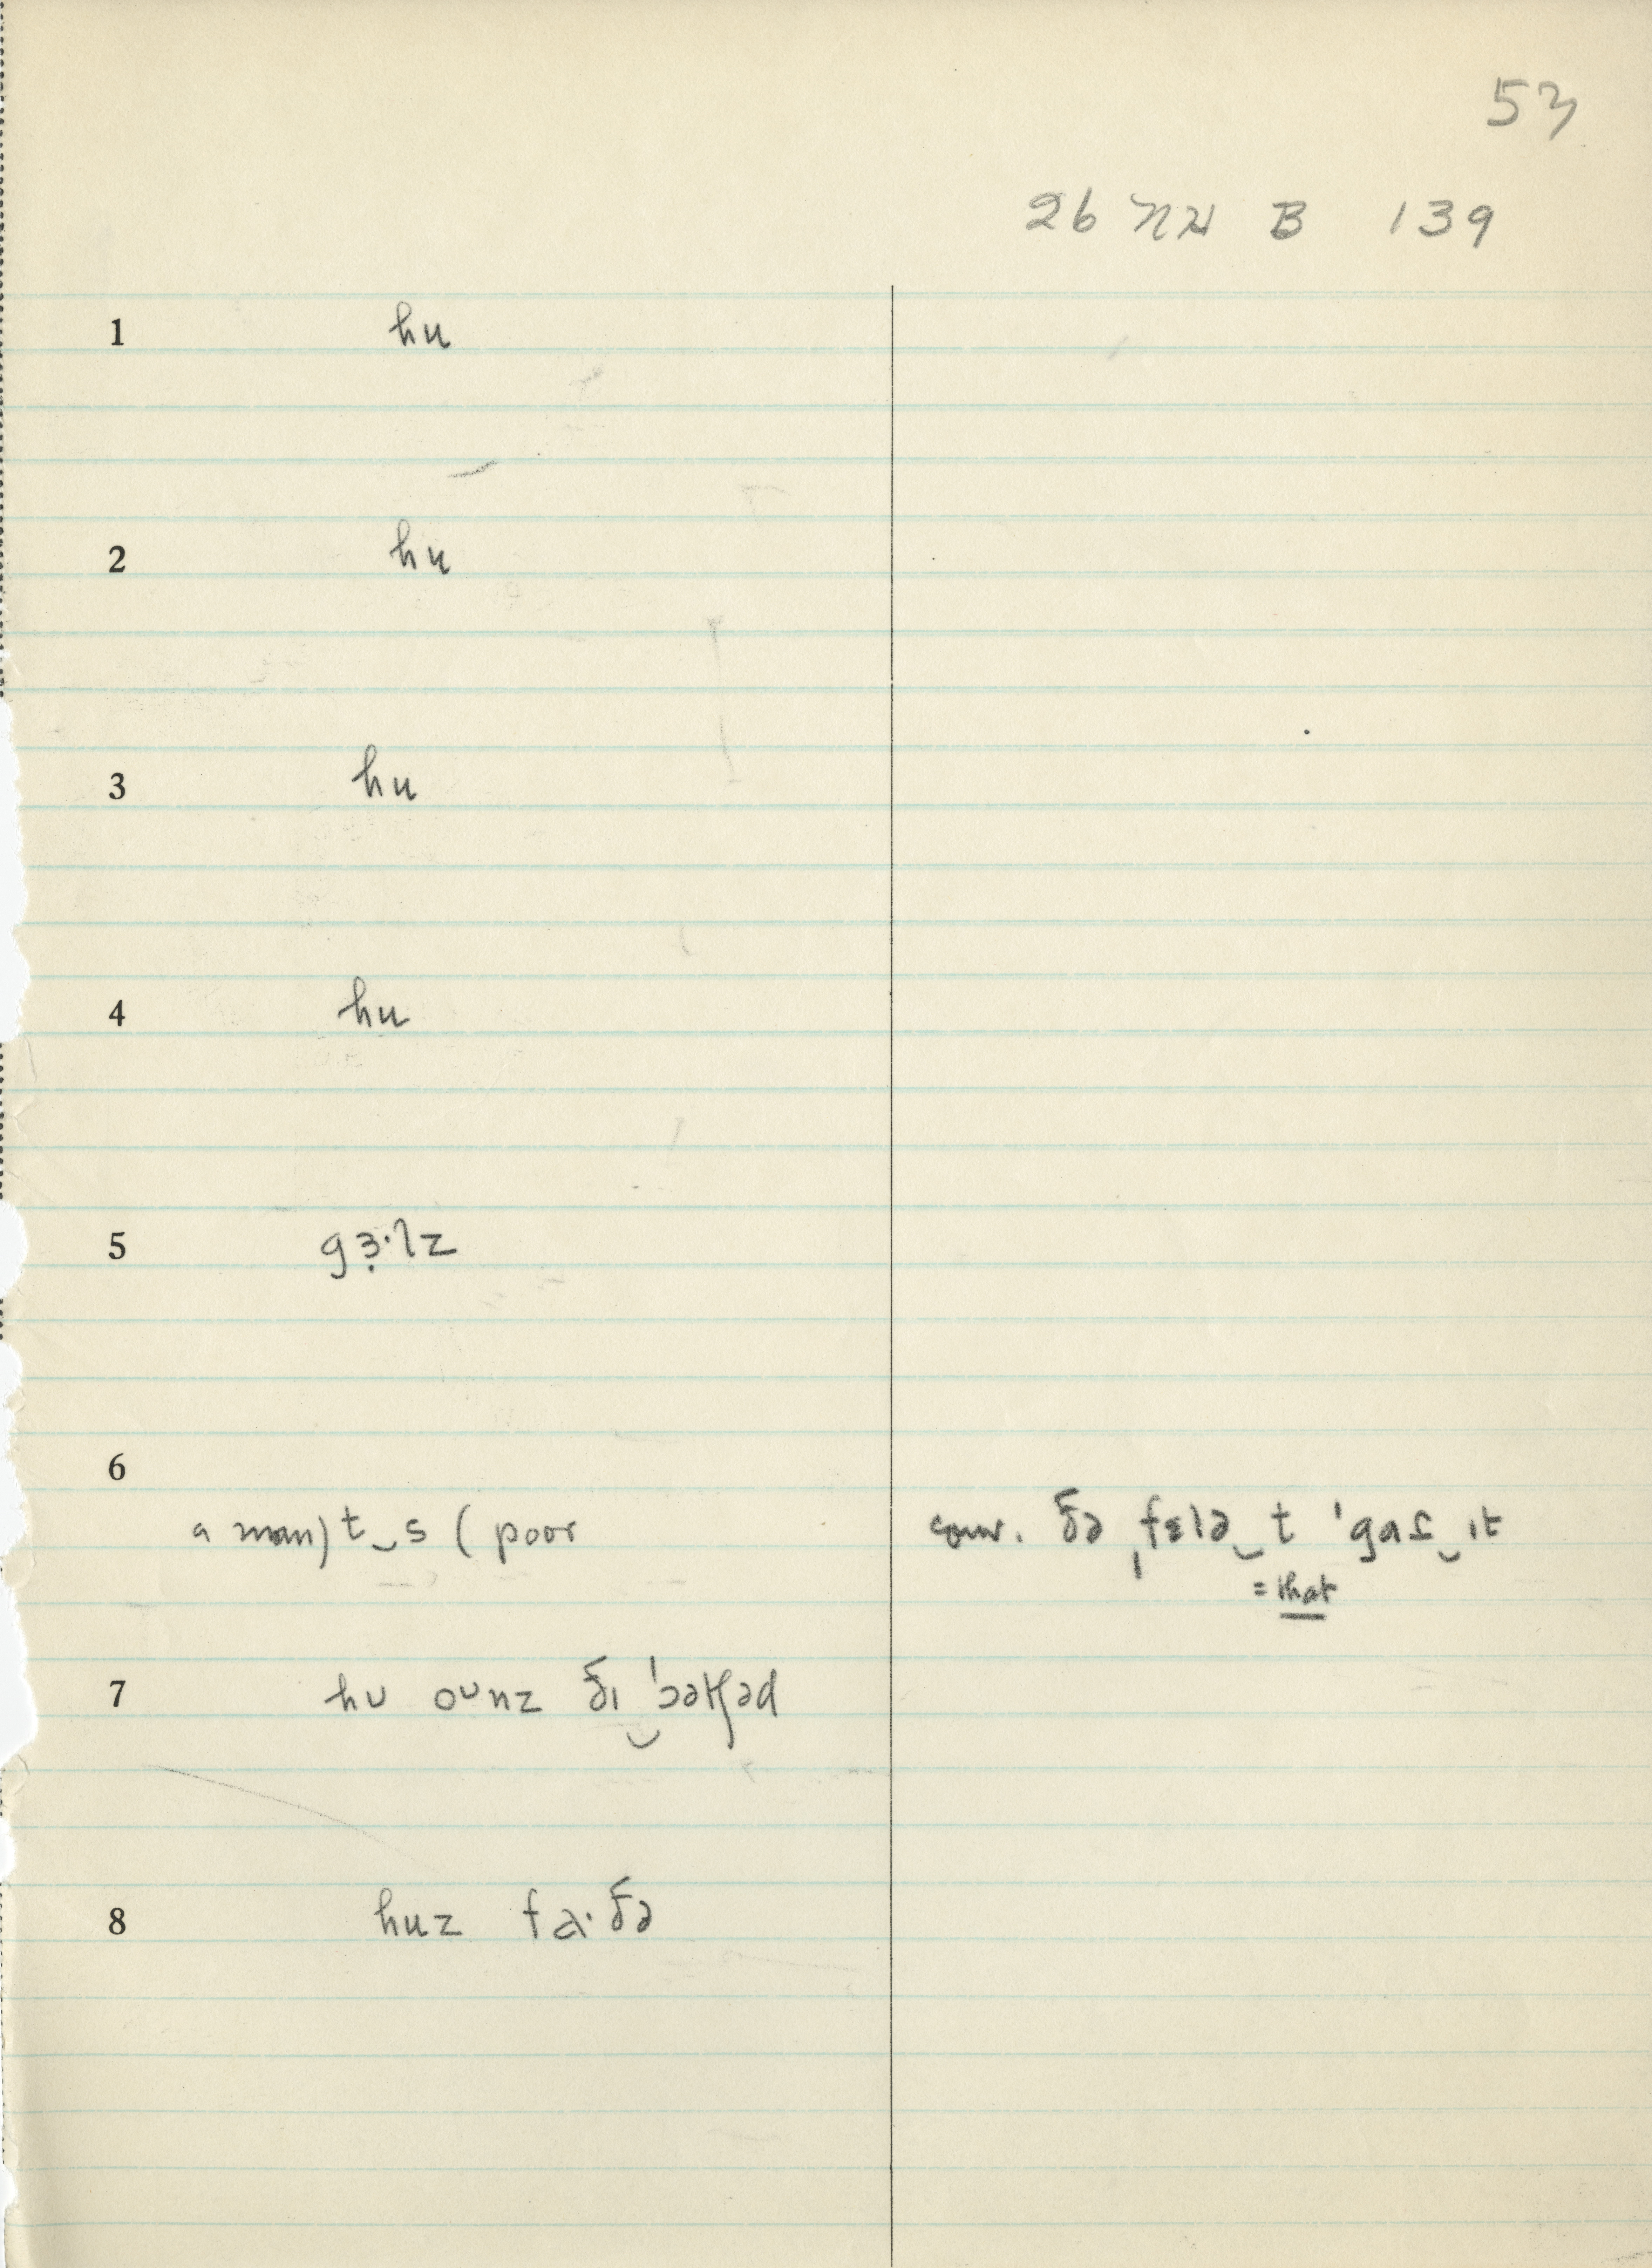 53
26 NN B 139
1 hu
2 hu
3 hu
4 hu
5 gɜ̣·lz
6
a man) t‿s (poor conv. ðə ˌfɛlə‿t ˈgaɾ‿ɪt
= that
7 hᴜ oᴜnz ðɪ‿ˈɔətʃəd
8 huz fa·ðə